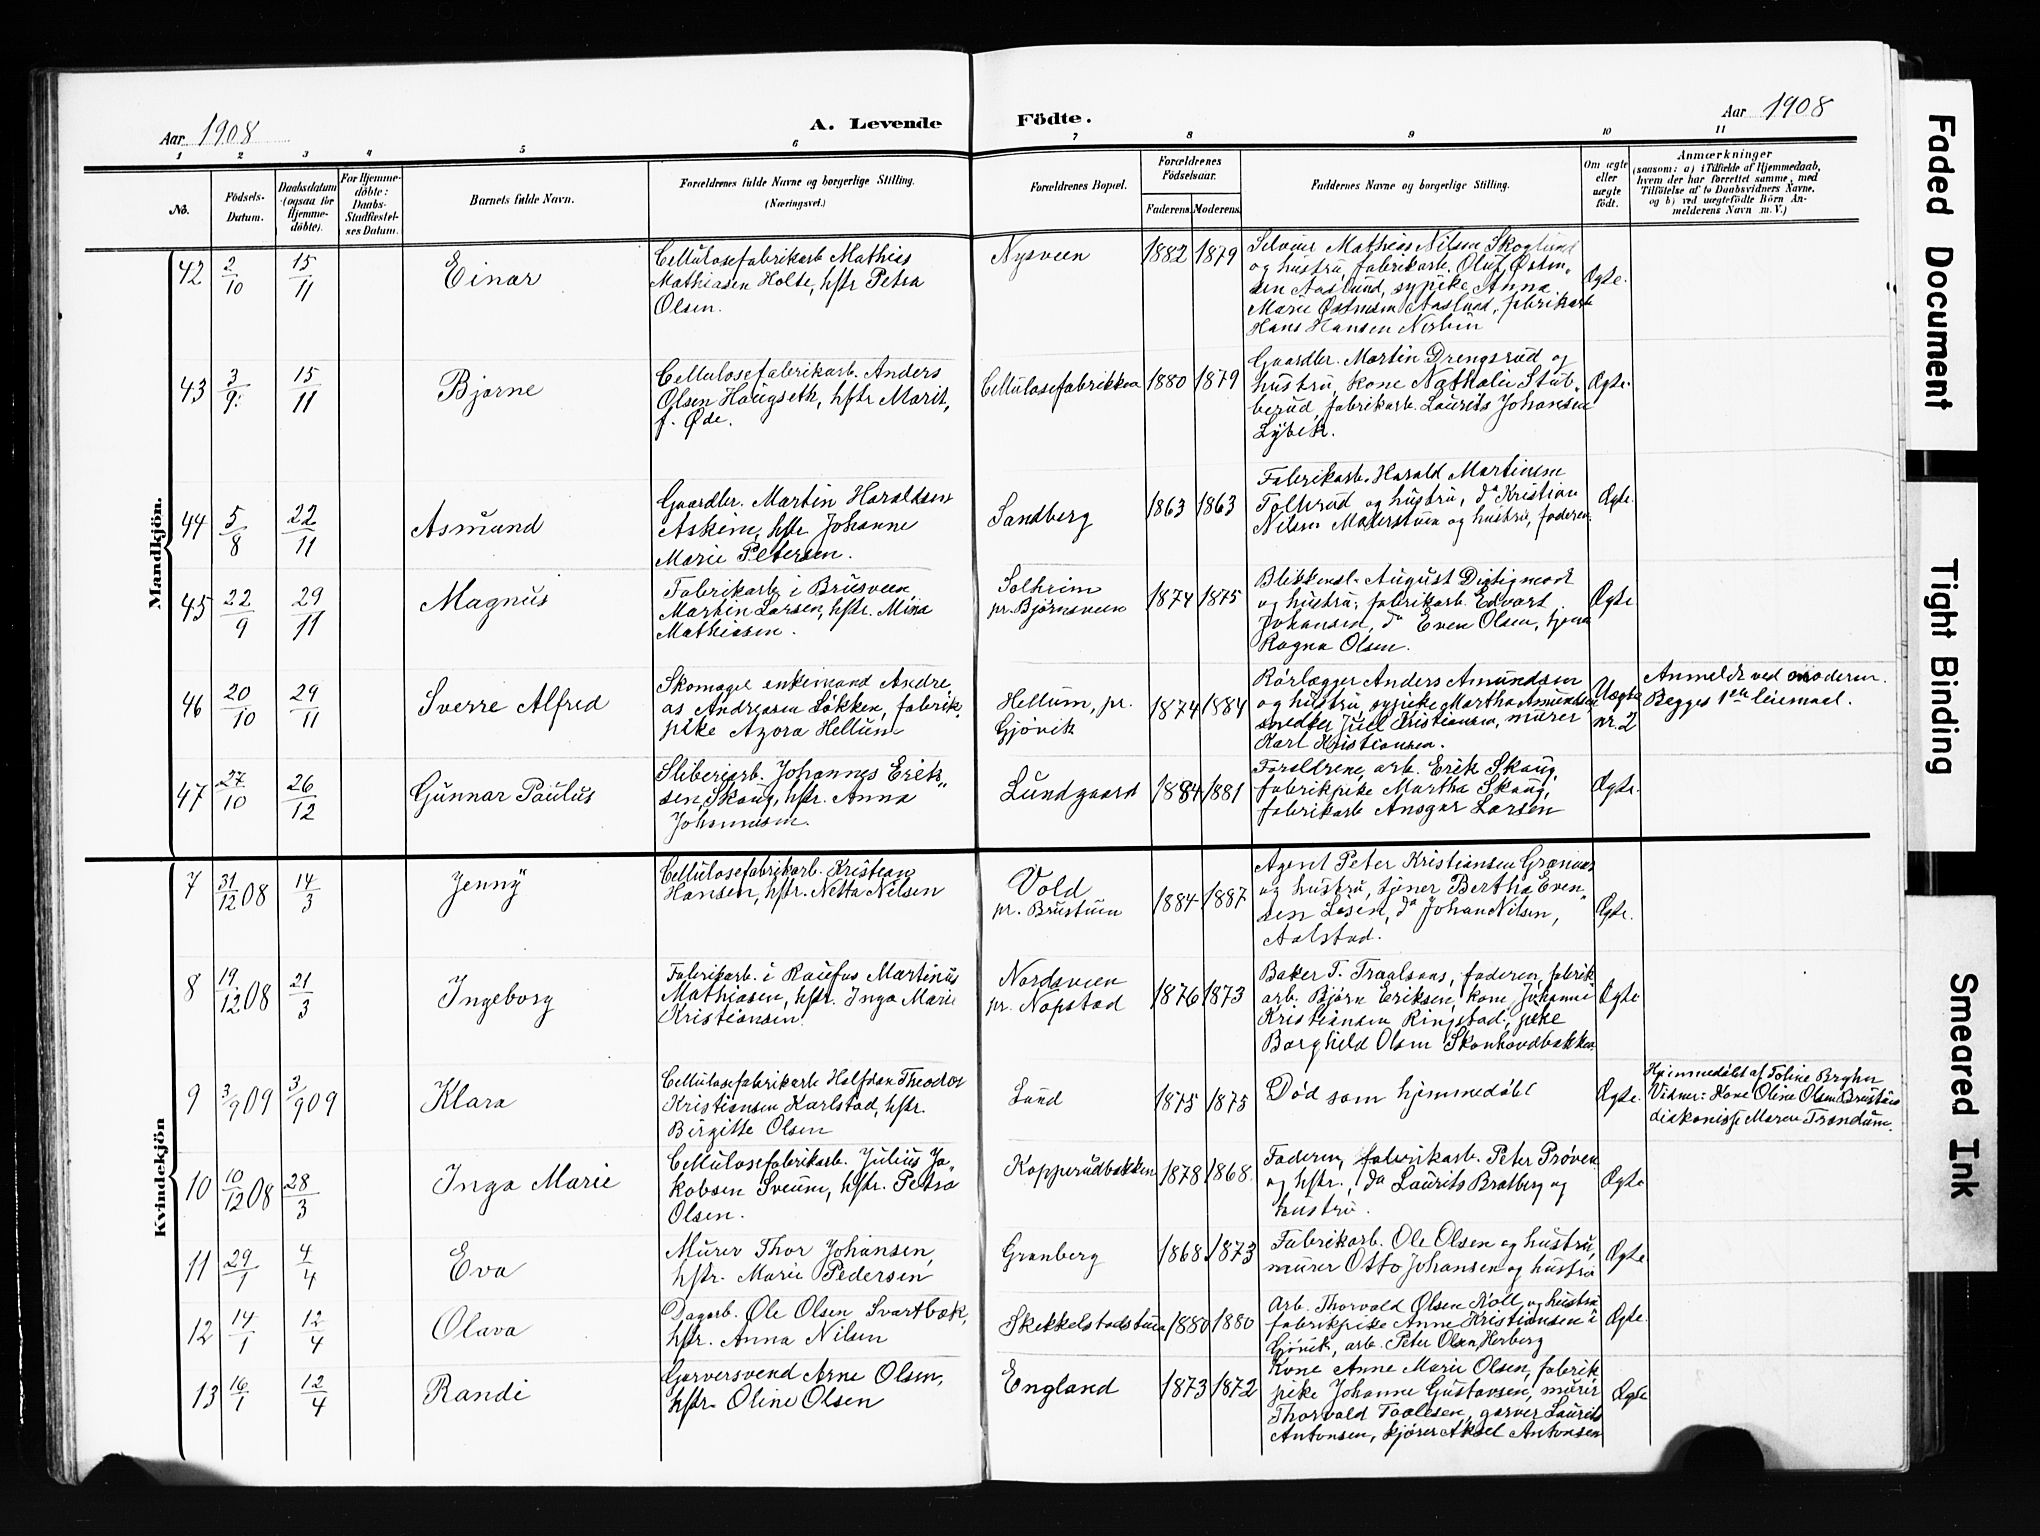 Aar 1908
A. Levende
Födte.
Aar 1908
1 2 3 4 5 6 7 8 9 10 11
No.
Födsels-
Datum.
Daabsdatum
(ogsaa for
Hjemme-
döbte).
For Hjemme-
döbte:
Daabs-
Stadfæstel-
ses Datum.
Barnets fulde Navn.
Forældrenes fulde Navne og borgerlige Stilling.
(Næringsvei.)
Forældrenes Bopæl.
Forældrenes
Födselsaar.
Faderens. Moderens.
Faddernes Navne og borgerlige Stilling.
Om ægte
eller
uægte
födt.
Anmærkninger
(saasom: a) i Tilfælde af Hjemmedaab,
hvem der har forrettet samme, med
Tilföielse af to Daabsvidners Navne,
og b) ved uægtefödte Börn An-
melderens Navn m. V.)
Mandkjön.
42 2/10 15/11 Einar
Cellulosefabrikarb Mathies
Mathiasen Holte, hstr Petra
Olsen.
Nysveen 1882 1879
Mathias Nilsen Skoglund
og hustru, fabrikarb. Oluf Østen-
sen Aaslund, sypike Anna
Marie Østensen Aaslund, fabrikarb
Hans Hansen
Ægte.
43 3/9. 15/11 Bjarne
Cellulosefabrikarb. Anders
Olsen Haugseth, hstr Marit,
f. Øde.
Cellulosefabrikken 1880 1879
Gaardbr. Martin Drengsrud og
hustru, kone Nathalie Stub-
berud, fabrikarb. Laurits Johansen
Lybek.
Ægte
44 5/8 22/11 Asmund
Gaardbr. Martin Haraldsen
Askim, hstr Johanne
Marie Petersen.
Sandberg 1863 1863
Fabrikarb. Harald Martinsen
Tollerud og hustru, da Kristian
Nilsen og hustru, faderen.
Ægte
45 22/9 29/11 Magnus
Fabrikarb i Brusveen
Martin Larsen, hstr. Mina
Mathiasen.
Solheim
pr. Bjørnsveen
1874 1875
Blikkensl. August
og hustru, fabrikarb. Edvart
Johansen, da Even Olsen, tjener
Ragna Olsen.
Ægte
46 20/10 29/11 Sverre Alfred
Skomager enkemand Andre
as Andreasen Løkken, fabrik.
pike Azora Hellum
Hellum, pr.
Gjövik
1874 1884
Rörlægger Anders Amundsen
og hustru, sypike Martha Amundsen
snedker Juul Kristiansen, murer
Karl Kristiansen.
Uægte
nr. 2
Anmeldt ved moderen.
Begges 1ste leiemaal.
47 27/10 26/12 Gunnar Paulus
Sliberiarb. Johannes Erik-
sen Skaug, hstr. Anna
Johannesen.
Lundgaard 1884 1881
Forældrene, arb. Erik Skaug,
fabrikpike Martha Skaug,
fabrikarb Ansgar Larsen
Ægte.
Kvindekjön
7 31/12 08 14/3 Jenny
Cellulosefabrikarb. Kristian
Hansen, hstr. Netta Nilsen
Vold
pr. Brustuen
1884 1887
Agent Peter Kristiansen
og hustru, tjener Bertha Even-
sen Løsen, da Johan Nilsen,
Aalstad.
Ægte.
8 19/12 08 21/3 Ingeborg
Fabrikarb. i Raufos Martinus
Mathiasen, hstr. Inga Marie
Kristiansen.
Nordsveen
pr. Nøpstad
1876 1873
Baker T. Traalsaas, faderen, fabrik-
arb. Bjørn Eriksen, kone Johanne
Kristiansen Ringstad, pike
Borghild Olsen Skonhovdbakken
Ægte
9 3/9 09 3/9 09 Klara
Cellulosefabrikarb Halfdan Theodor
Kristiansen Karlstad, hstr.
Birgitte Olsen
Lund 1875 1875
Død som hjemmedøbt
Ægte.
Hjemmedöbt af Toline Bryhn
Vidner: Kone Oline Olsen Brustuen
diakonisse Maren Trandum.
10 10/12 08 28/3 Inga Marie
Cellulosefabrikarb. Julius Ja-
kobsen Sveum, hstr. Petra
Olsen.
Kopperudbakken 1878 1868.
Faderen, fabrikarb. Peter Prøven
og hstr., da Laurits Bratberg og
hustru.
Ægte
11 29/1 4/4 Eva
Murer Thor Johansen,
hstr. Marie Pedersen
Granberg 1868 1873
Fabrikarb. Ole Olsen og hustru,
murer Otto Johansen og hustru
Ægte
12 14/1 12/4 Olava
Dagarb. Ole Olsen Svartbæk,
hstr. Anna Nilsen
Skikkelstadstuen 1880 1880
Arb. Thorvald Olsen Roll og hustru
fabrikpike Anne Kristiansen i
Gjövik, arb. Peter Olsen Herberg
Ægte.
13 16/1 12/4 Randi
Garversvend Arne Olsen,
hstr. Oline Olsen
England 1873 1872
Kone Anne Marie Olsen, fabrik
pike Johanne Gustavsen, murer
Thorvald Paulsen, garver Laurits
Antonsen, kjører Aksel Antonsen
Ægte
Faded Document
Tight Binding
Smeared Ink